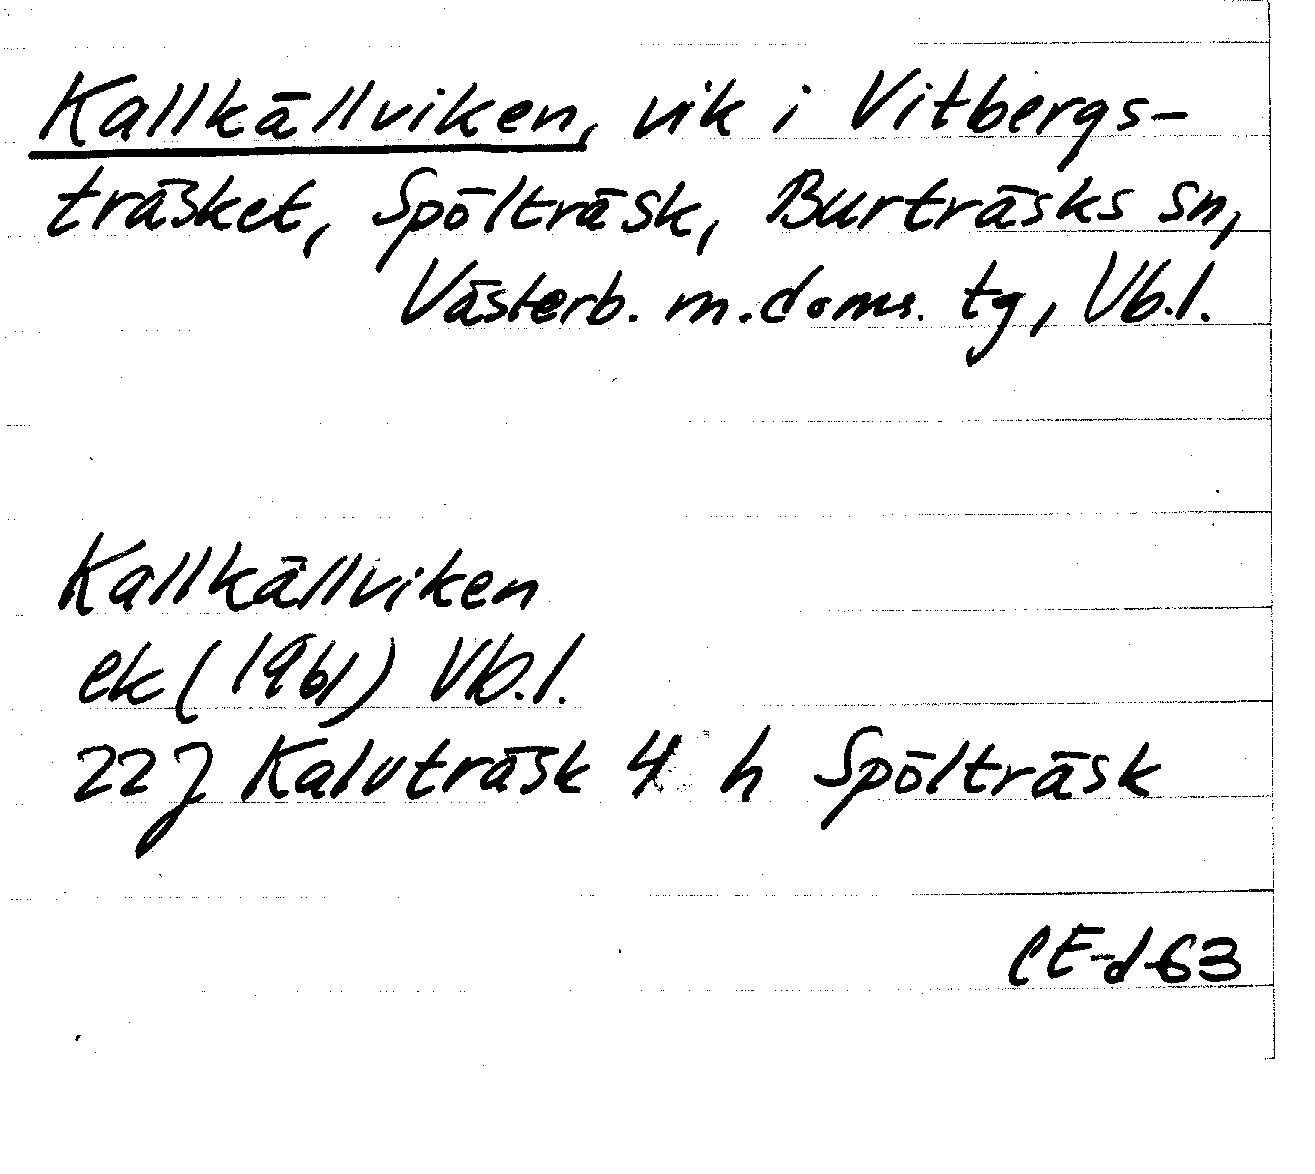 Kallkällviken, vik i Vitbergs-
träsket, Spölträsk, Burträsks sn,
Västerb. m. doms. tg, Vb.l.
Kallkällviken
ek (1961) Vb.l.
22J Kalvträsk 4 h Spölträsk
CE-d-63